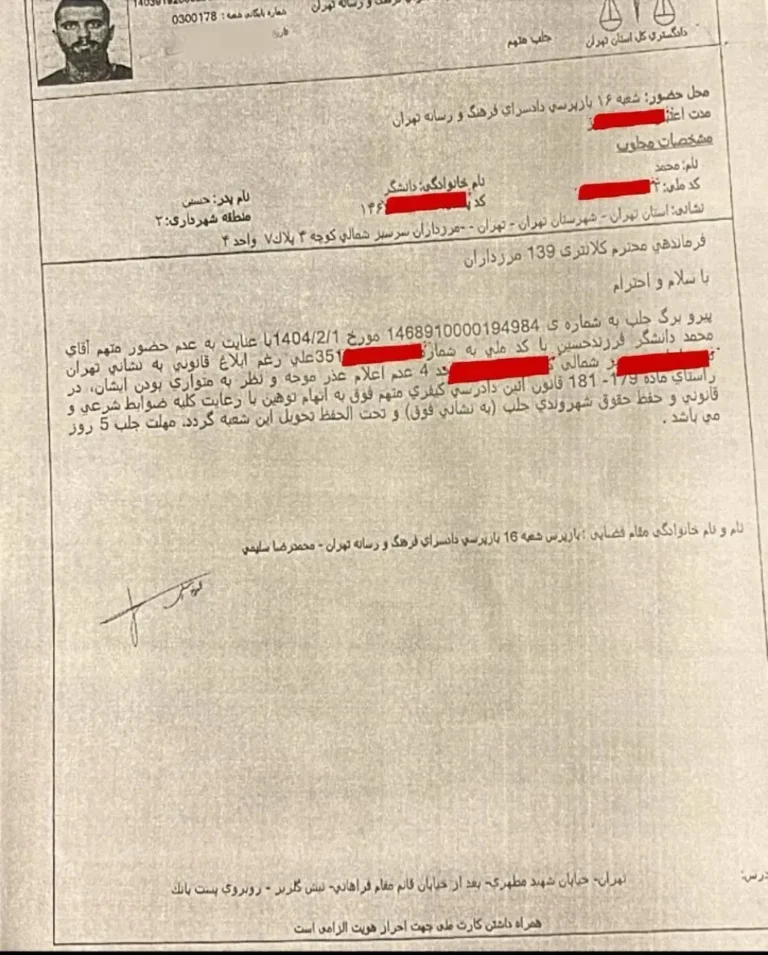 شماره بایگانی شعبه: 0300178
دادگستری کل استان تهران
جلب متهم
محل حضور: شعبه ۱۶ بازپرسی دادسرای فرهنگ و رسانه تهران
مدت
مشخصات مجلوب
نام: محمد نام خانوادگی: دانشگر نام پدر: حسین
کد ملی: ۲ کد ۱۴۶ منطقه شهرداری: ۲
نشانی: استان تهران - شهرستان تهران - تهران - -مرزداران سرسبز شمالی کوچه ۳ پلاک۷ واحد ۴
فرماندهی محترم کلانتری 139 مرزداران
با سلام و احترام
پیرو برگ جلب به شماره ی 1468910000194984 مورخ 1404/2/1با عنایت به عدم حضور متهم آقای
محمد دانشگر فرزندحسین با کد ملی به شماره 351 علی رغم ابلاغ قانونی به نشانی تهران
شمالی 4 عدم اعلام عذر موجه و نظر به متواری بودن ایشان، در
راستای ماده 179- 181 قانون آئین دادرسی کیفری متهم فوق به اتهام توهین با رعایت کلیه ضوابط شرعی و
قانونی و حفظ حقوق شهروندی جلب (به نشانی فوق) و تحت الحفظ تحویل این شعبه گردد، مهلت جلب 5 روز
می باشد .
نام و نام خانوادگی مقام قضایی : بازپرس شعبه 16 بازپرسی دادسرای فرهنگ و رسانه تهران - محمدرضا سلیمی
تهران- خیابان شهید مطهری- بعد از خیابان قائم مقام فراهانی- نبش گلریز - روبروی پست بانک
همراه داشتن کارت ملی جهت احراز هویت الزامی است